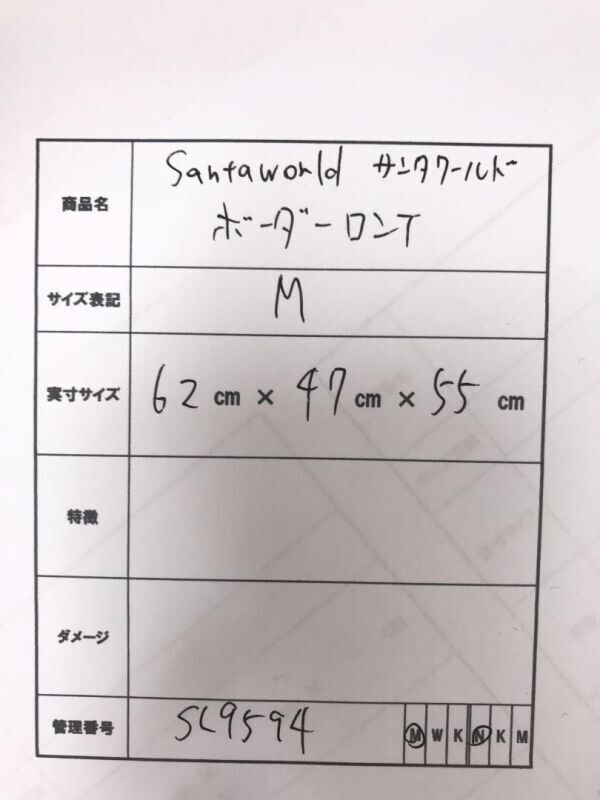 商品名
Santaworld サンタワールド
ボーダーロンT
サイズ表記
M
実寸サイズ
62 cm × 47 cm × 55 cm
特徴
ダメージ
管理番号
SL9594
M W K N K M